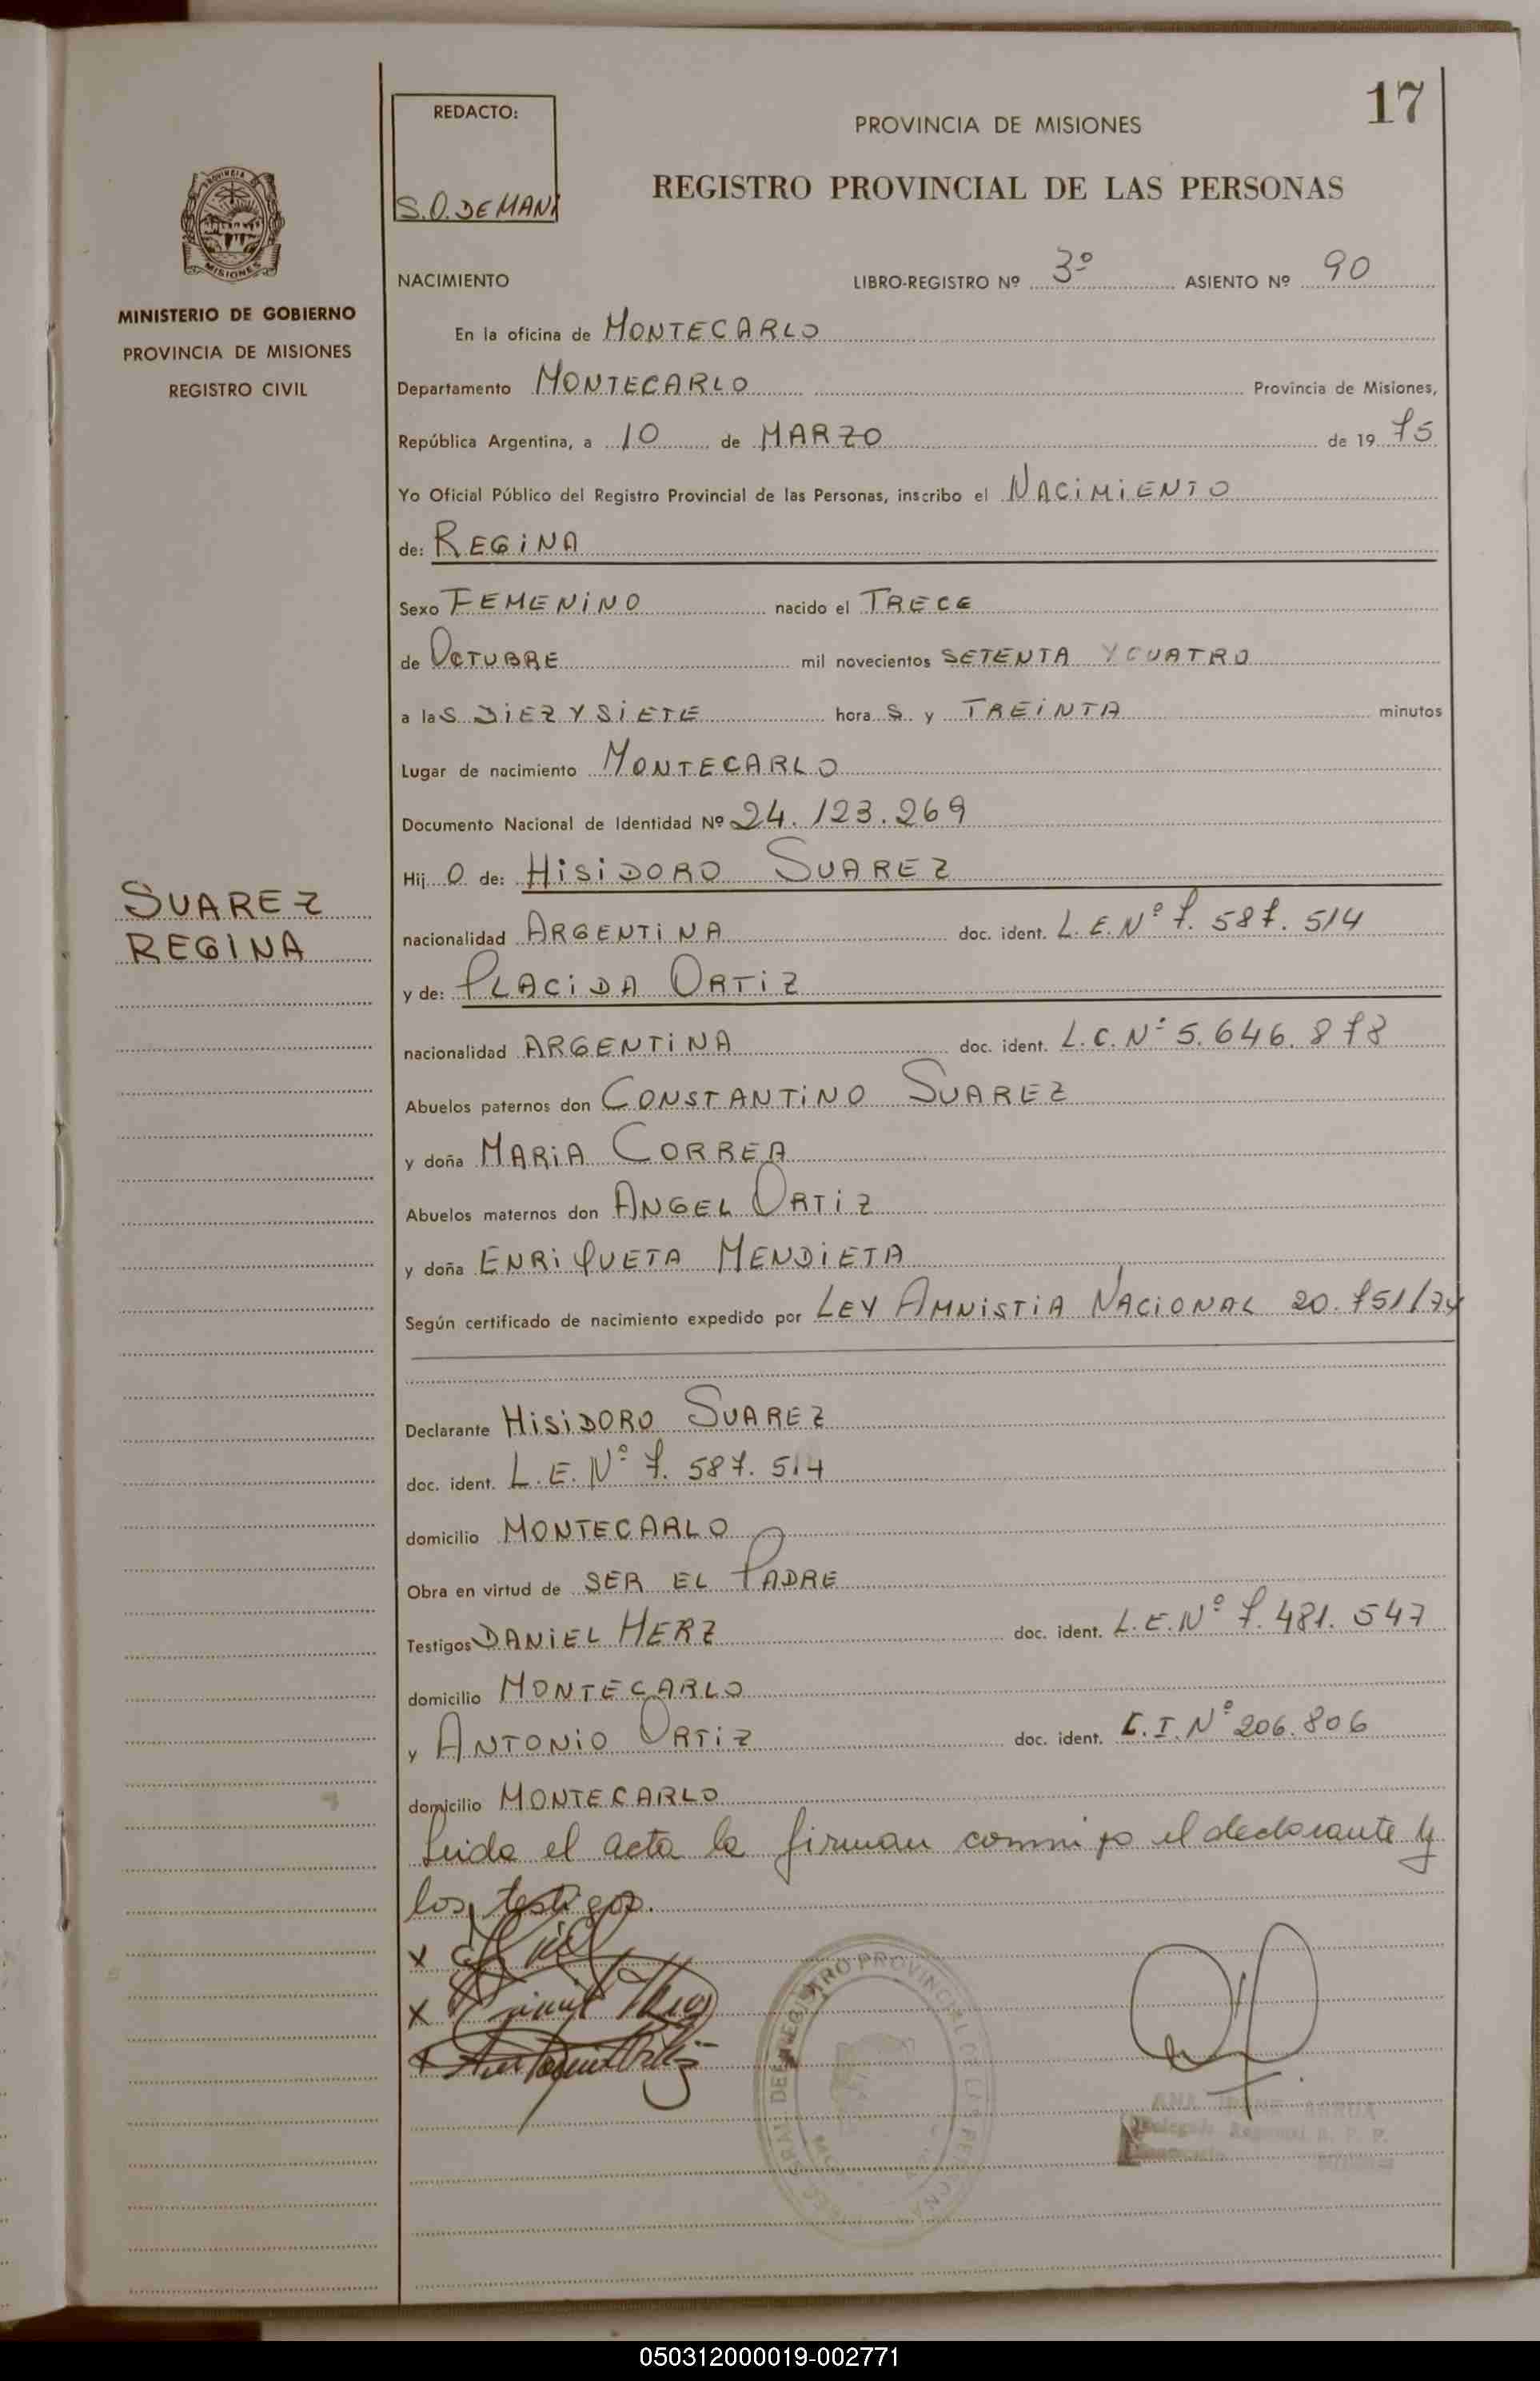 17
REDACTO:
S.O. DEMANI
PROVINCIA DE MISIONES
REGISTRO PROVINCIAL DE LAS PERSONAS
PROVINCIA DE MISIONES
MINISTERIO DE GOBIERNO
PROVINCIA DE MISIONES
REGISTRO CIVIL
NACIMIENTO LIBRO-REGISTRO Nº 3º ASIENTO Nº 90
En la oficina de MONTECARLO
Departamento MONTECARLO Provincia de Misiones,
República Argentina, a 10 de MARZO de 19 75
Yo Oficial Público del Registro Provincial de las Personas, inscribo el NACIMIENTO
de: REGINA
Sexo FEMENINO nacido el TRECE
de OCTUBRE mil novecientos SETENTA Y CUATRO
a las DIEZ Y SIETE horas y TREINTA minutos
Lugar de nacimiento MONTECARLO
Documento Nacional de Identidad Nº 24.123.269
Hij O de: HISIDORO SUAREZ
SUAREZ
REGINA
nacionalidad ARGENTINA doc. ident. L.E.Nº 7.587.514
y de: PLACIDA ORTIZ
nacionalidad ARGENTINA doc. ident. L.C.Nº 5.646.878
Abuelos paternos don CONSTANTINO SUAREZ
y doña MARIA CORREA
Abuelos maternos don ANGEL ORTIZ
y doña ENRIQUETA MENDIETA
Según certificado de nacimiento expedido por LEY AMNISTIA NACIONAL 20.751/74
Declarante HISIDORO SUAREZ
doc. ident. L.E.Nº 7.587.514
domicilio MONTECARLO
Obra en virtud de SER EL PADRE
Testigos DANIEL HERZ doc. ident. L.E.Nº 7.481.547
domicilio MONTECARLO
y ANTONIO ORTIZ doc. ident. C.I.Nº 206.806
domicilio MONTECARLO
Leida el acta la firman conmigo el declarante y
los testigos.
x
x
x Antonio Ortiz
DEL REGISTRO PROVINCIAL DE LAS PERSONAS
050312000019-002771